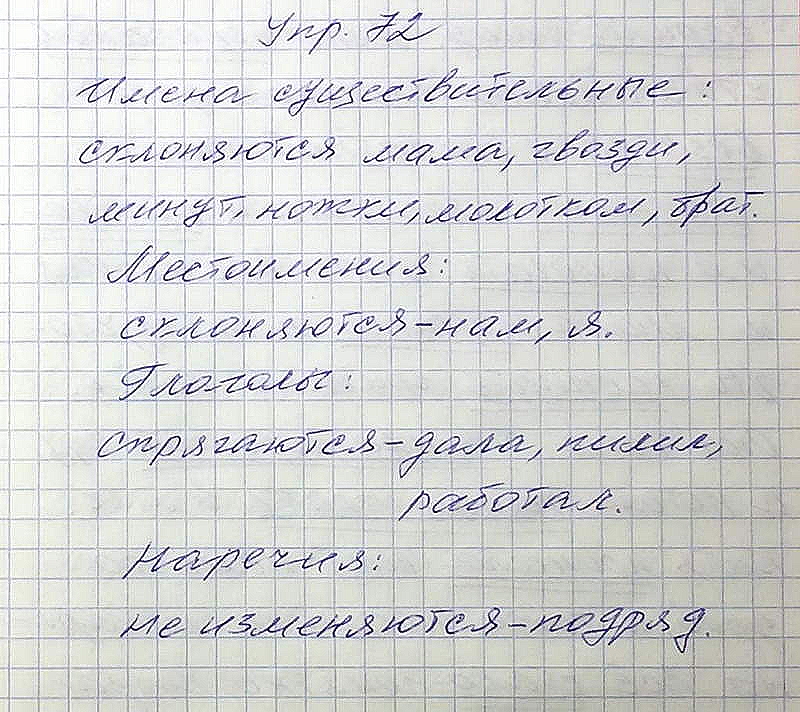 Упр. 72
Имена существительные:
склоняются мама, гвозди,
минут, ножки, молотком, брат.
Местоимения:
склоняются-нам, я.
Глаголы:
спрягаются-дала, пилил,
работал.
Наречия:
не изменяются-подряд.